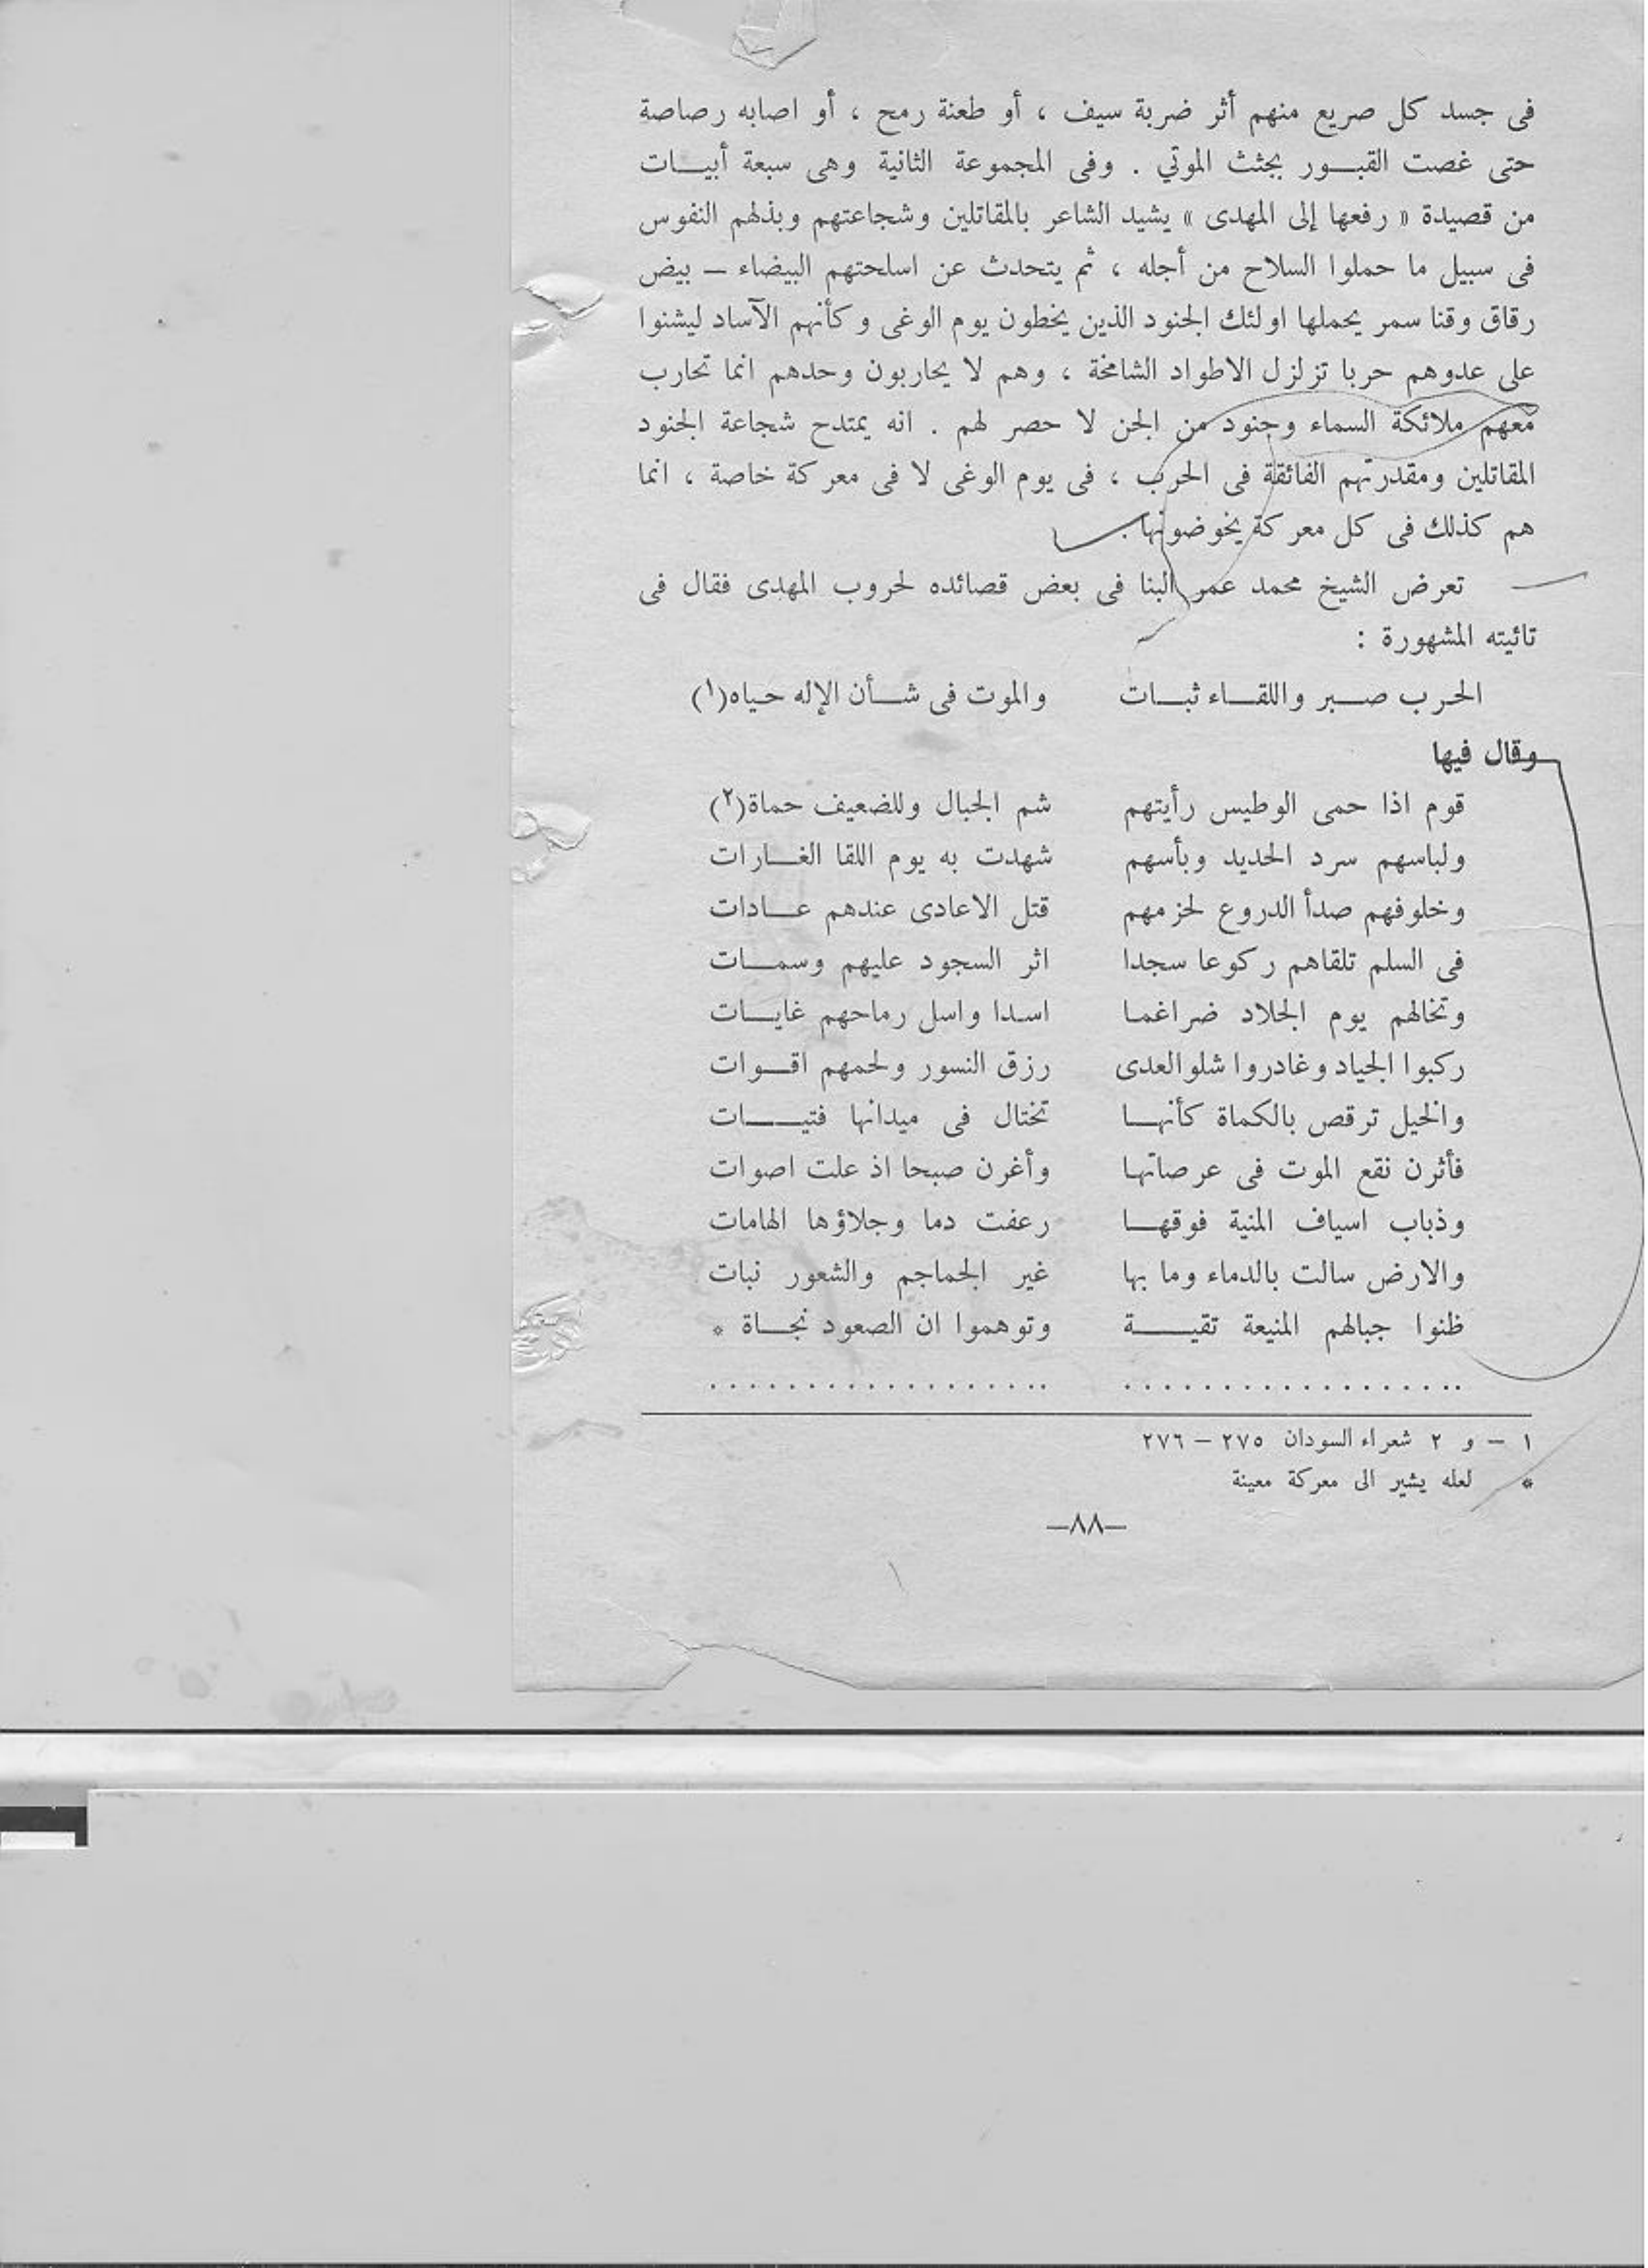 فى جسد كل صريع منهم أثر ضربة سيف ، أو طعنة رمح ، أو اصابه رصاصة
حتى غصت القبــور بجثث الموتي . وفى المجموعة الثانية وهى سبعة أبيــات
من قصيدة « رفعها إلى المهدى » يشيد الشاعر بالمقاتلين وشجاعتهم وبذلهم النفوس
فى سبيل ما حملوا السلاح من أجله ، ثم يتحدث عن اسلحتهم البيضاء – بيض
رقاق وقنا سمر يحملها اولئك الجنود الذين يخطون يوم الوغى وكأنهم الآساد ليشنوا
على عدوهم حربا تزلزل الاطواد الشامخة ، وهم لا يحاربون وحدهم انما تحارب
معهم ملائكة السماء وجنود من الجن لا حصر لهم . انه يمتدح شجاعة الجنود
المقاتلين ومقدرتهم الفائقة فى الحرب ، فى يوم الوغى لا فى معركة خاصة ، انما
هم كذلك فى كل معركة يخوضونها .
تعرض الشيخ محمد عمر البنا فى بعض قصائده لحروب المهدى فقال فى
تائيته المشهورة :
الحرب صــبر واللقــاء ثبــات والموت فى شــأن الإله حياه(١)
وقال فيها
قوم اذا حمى الوطيس رأيتهم شم الجبال وللضعيف حماة(٢)
ولباسهم سرد الحديد وبأسهم شهدت به يوم اللقا الغــارات
وخلوفهم صدأ الدروع لحزمهم قتل الاعادى عندهم عــادات
فى السلم تلقاهم ركوعا سجدا اثر السجود عليهم وسمــات
وتخالهم يوم الجلاد ضراغما اسدا واسل رماحهم غايــات
ركبوا الجياد وغادروا شلو العدى رزق النسور ولحمهم اقــوات
والخيل ترقص بالكماة كأنهــا تختال فى ميدانها فتيــــات
فأثرن نقع الموت فى عرصاتها وأغرن صبحا اذ علت اصوات
وذباب اسياف المنية فوقهــا رعفت دما وجلاؤها الهامات
والارض سالت بالدماء وما بها غير الجماجم والشعور نبات
ظنوا جبالهم المنيعة تقيــــة وتوهموا ان الصعود نجــاة *
. . . . . . . . . . . . . . . . . . . . . . . . . . . . . . . . . . . .
١ – و ٢ شعراء السودان ٢٧٥ – ٢٧٦
* لعله يشير الى معركة معينة
–٨٨–